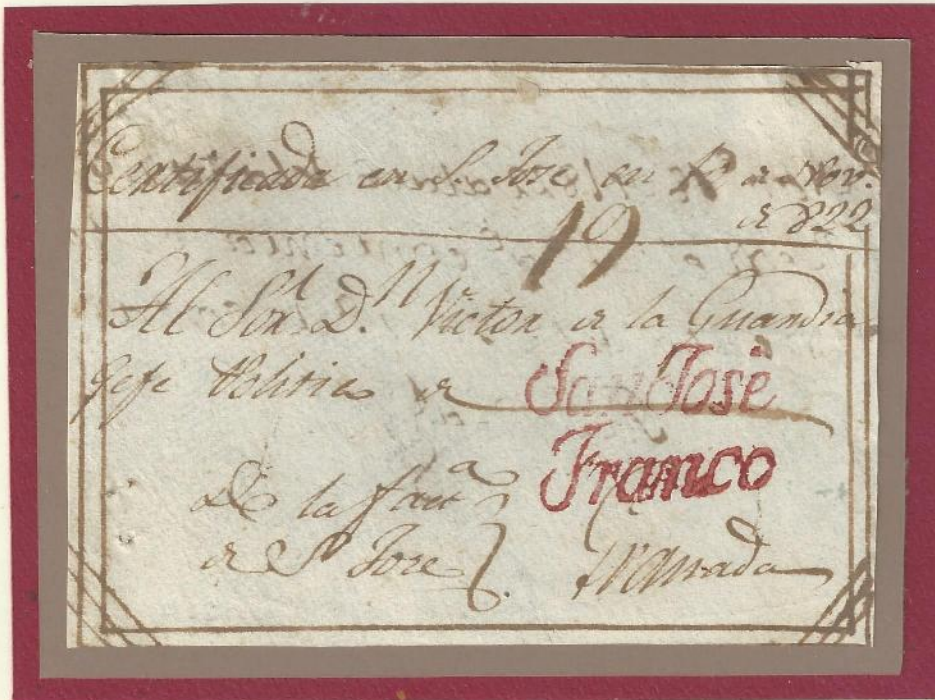 Certificada en S. Jose en 2 de Nov.
de 822
19
Al Sor. D.n Victor de la Guardia
Gefe Politico de
San Josè
Franco
De la fact.a
de S. Jose
Granada